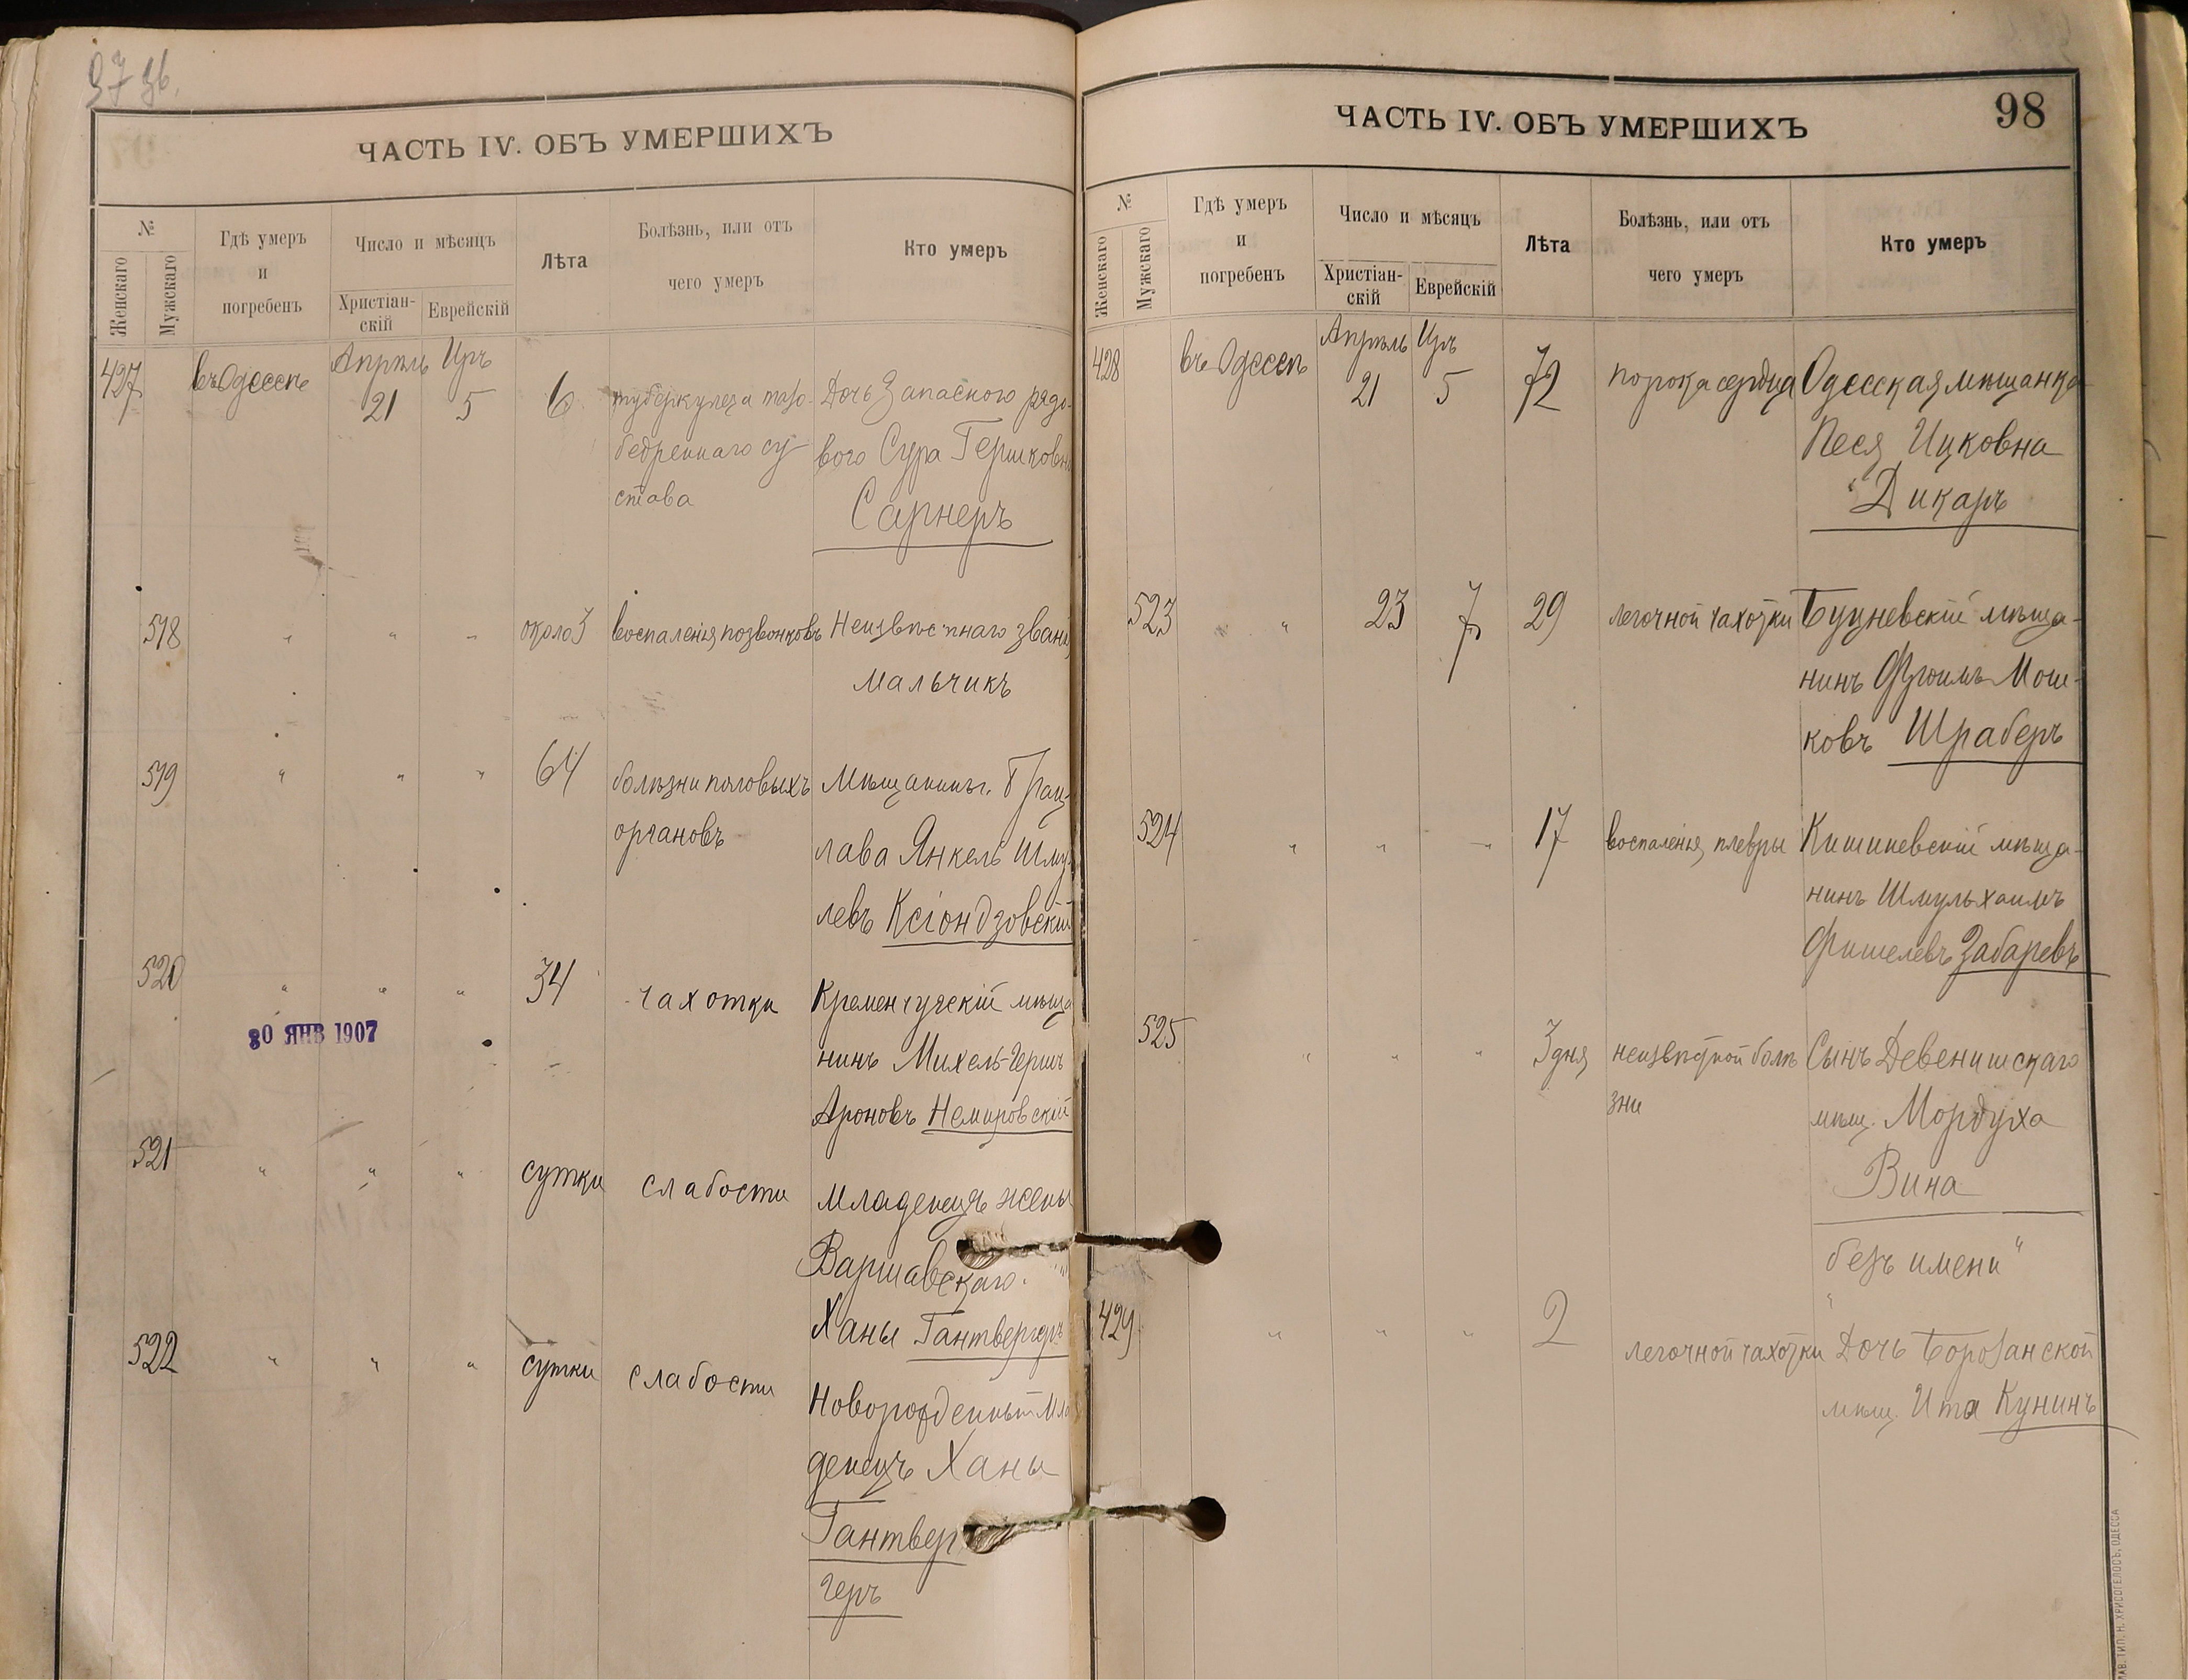 97 об.
ЧАСТЬ IV. ОБЪ УМЕРШИХЪ
№
Женскаго
Мужскаго
Гдѣ умеръ
и
погребенъ
Число и мѣсяцъ
Христіан-
скій
Еврейскій
Лѣта
Болѣзнь, или отъ
чего умеръ
Кто умеръ
427
въ Одессѣ
Апрѣль
21
Иръ
5
6
туберкулеза тазо-
бедреннаго су
става
Дочь Запаснаго рядо-
вого Сура Гершковна
Сарнеръ
518
"
"
"
около 3
воспаленія позвонковъ
Неизвѣстнаго званія
мальчикъ
519
"
"
"
64
болѣзни половыхъ
органовъ
Мѣщанинъ г. Брац
лава Янкель Шму-
левъ Ксіондзовскій
520
"
"
"
34
чахотки
Кременчугскій мѣща
нинъ Михель-Герш
Ароновъ Немировскій
30 ЯНВ 1907
521
"
"
"
сутки
слабости
младенецъ жены
Варшавскаго
Ханы Гантвергеръ
522
"
"
"
сутки
слабости
Новорожденный мла
денецъ Ханы
Гантвер
геръ
98
ЧАСТЬ IV. ОБЪ УМЕРШИХЪ
№
Женскаго
Мужскаго
Гдѣ умеръ
и
погребенъ
Число и мѣсяцъ
Христіан-
скій
Еврейскій
Лѣта
Болѣзнь, или отъ
чего умеръ
Кто умеръ
428
въ Одессѣ
Апрѣль
21
Иръ
5
72
порока сердца
Одесская мѣщанка
Песя Ицковна
Дикаръ
523
"
23
7
29
легочной чахотки
Буцневскій мѣща-
нинъ Фроимъ Мош-
ковъ Шраберъ
524
"
"
"
17
воспаленія плевры
Кишиневскій мѣща-
нинъ Шмуль Хаимъ
Фишелевъ Забаревъ
525
"
"
"
3 дня
неизвѣстной болѣ
зни
Сынъ Девенишскаго
мѣщ. Мордуха
Вина
безъ имени"
429
"
"
"
2
легочной чахотки
Дочь Борозянской
мѣщ. Ита Кунинъ
ТИП. Н. ХРИСОГЕЛОСЪ, ОДЕССА